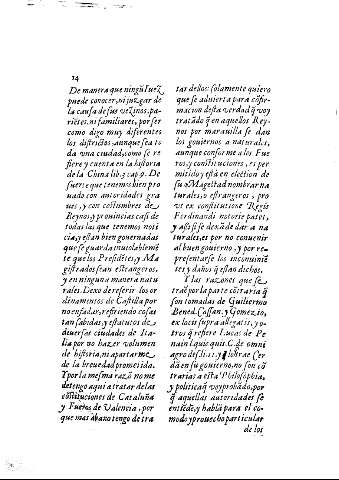 14
De manera que ningũ Iuez
puede conocer, ni juzgar de
la causa de sus vezinos, pa-
riẽtes, ni familiares, por ser
como digo muy diferentes
los districtos, aunque sea to
da vna ciudad, como se re
fiere y cuenta en la historia
de la China lib. 3. cap. 9. De
suerte que tenemos bien pro
uado con autoridades gra
ues, y con costumbres de
Reynos, y prouincias casi de
todas las que tenemos noti
cia, y estan bien gouernadas
que se guarda inuiolablemẽ
te que los Presidẽtes, y Ma
gistrados sean estrangeros,
y en ninguna manera natu
rales. Dexo de referir los or
dinamentos de Castilla por
no enfadar, refiriendo cosas
tan sabidas, y estatutos de
diuersas ciudades de Ita-
lia por no hazer volumen
de historia, ni apartarme
de la breuedad prometida.
Y por la mesma razõ no me
detengo aqui a tratar de las
cõstituciones de Cataluña
y Fueros de Valencia, por
que mas abaxo tengo de tra
tar dellos: solamente quiero
que se aduierta para cõfir-
macion desta verdad q̃ voy
tratãdo, q̃ en aquellos Rey-
nos por marauilla se dan
los gouiernos a naturales,
aunque conforme a los Fue
ros, y constituciones, es per
mitido y està en election de
su Magestad nombrar na
turales, o estrangeros, pro
vt ex constitutione Regis
Ferdinandi notorie patet,
y assi si se dexã de dar a na
turales, es por no conuenir
al buen gouierno, y por re-
presentarse los inconuiniẽ
tes y daños q̃ estan dichos.
Y las razones que se
traẽ por la parte cõtraria q̃
son tomadas de Guillermo
Bened. Cassan. y Gomezio,
ex locis supra allegatis, y o-
tros q̃ refiere Lucas de Pe-
na in l. quicunque C. de omni
agro des. li. 11. y Iobtrae Cer
dã en su gouierno, no son cõ
trarias a esta Philosophia,
y politica q̃ voy probãdo, por
q̃ aquellas autoridades se
entiẽde, y hablã para el co-
modo y prouecho particular
de los